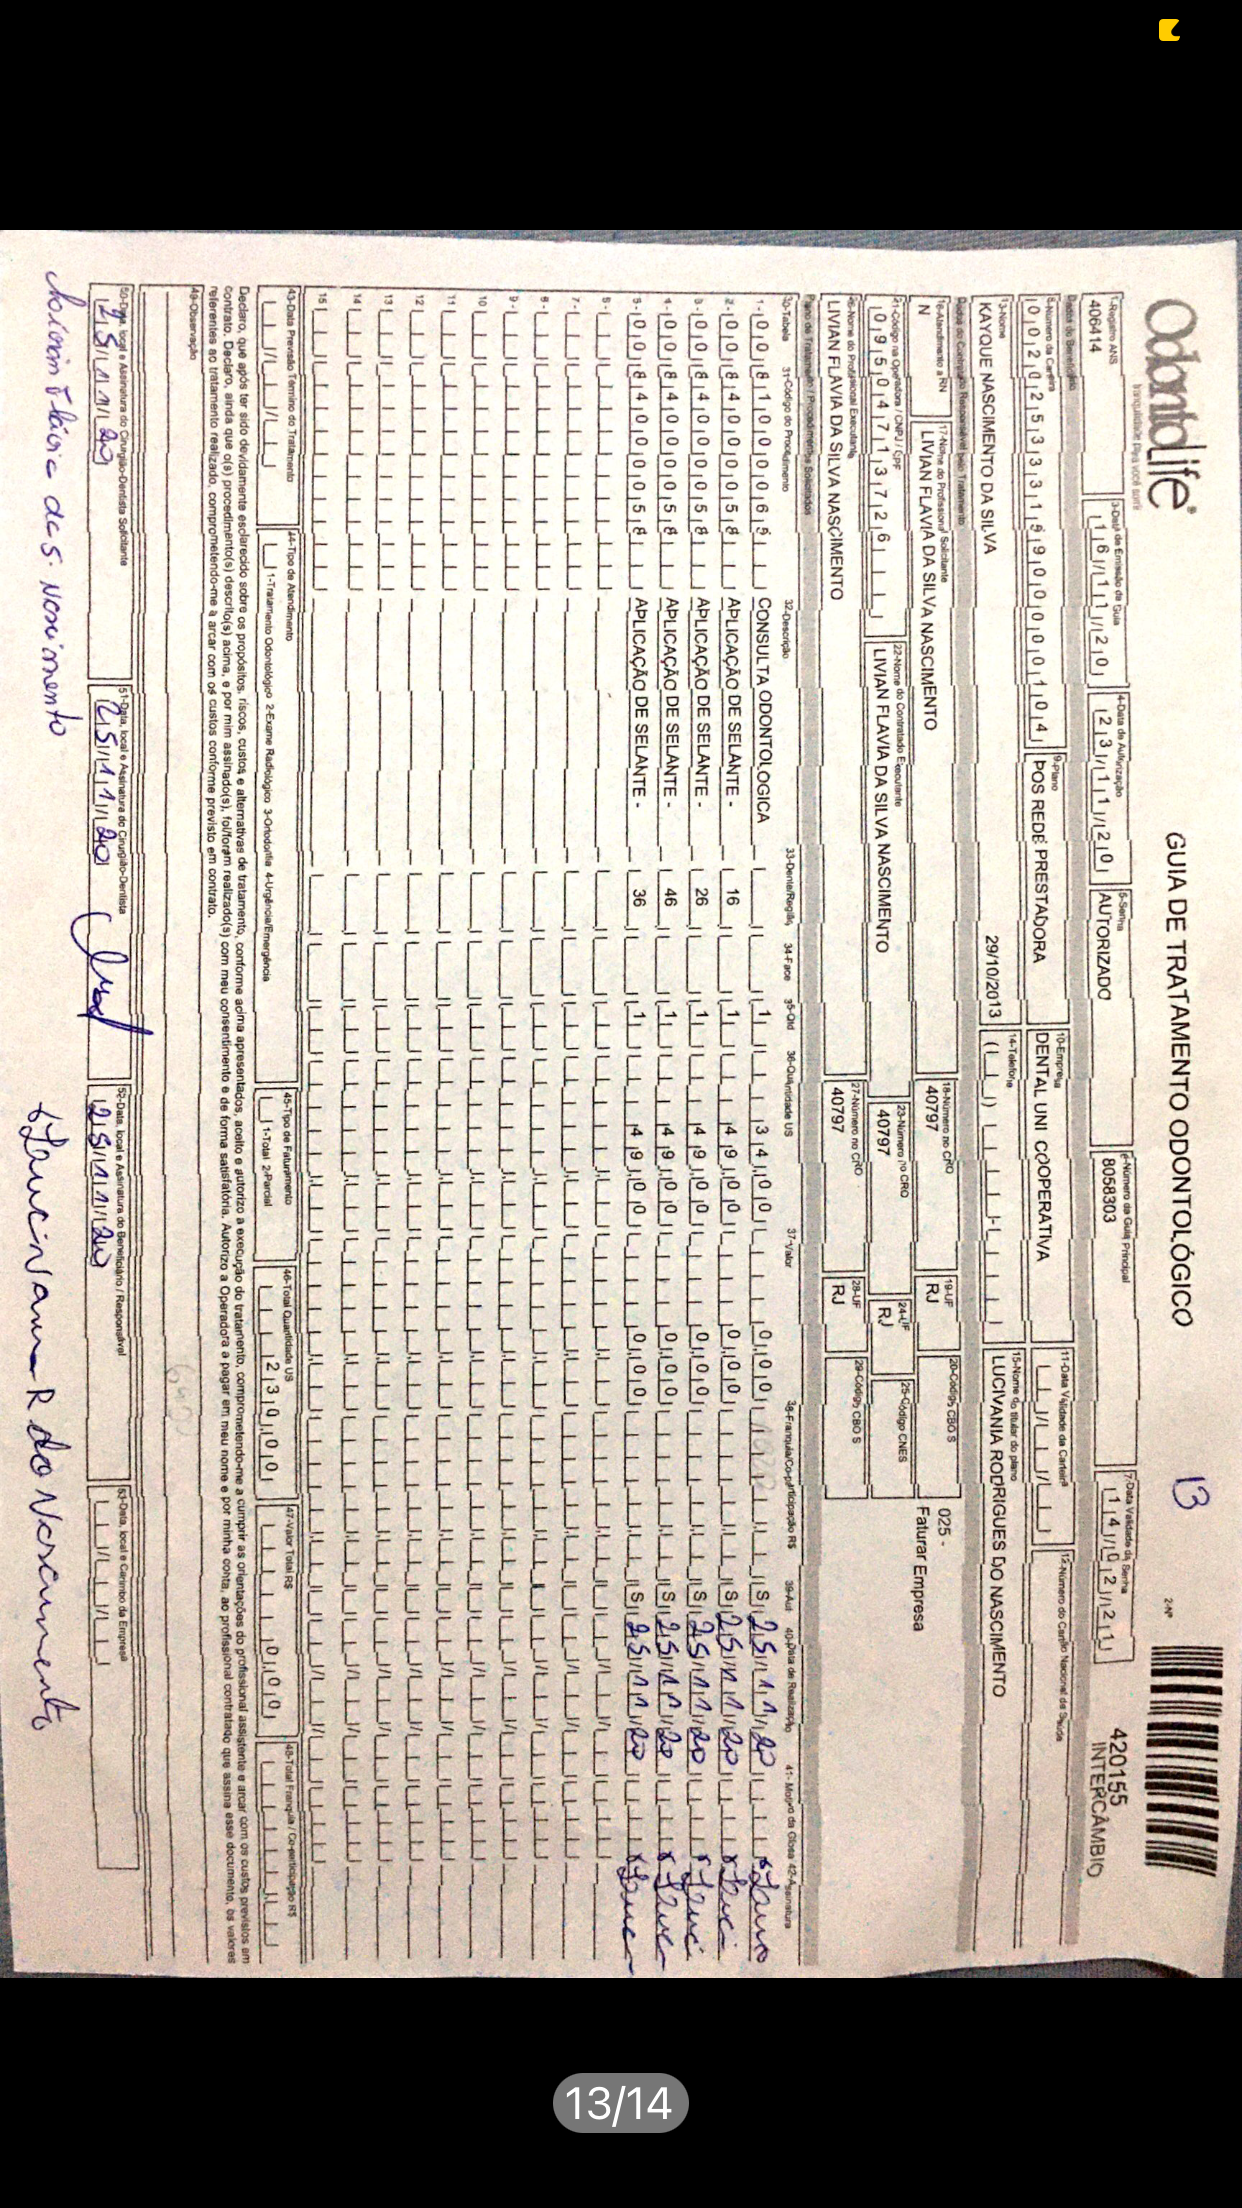 Odontolife®
tranquilidade para você sorrir
GUIA DE TRATAMENTO ODONTOLÓGICO
13
2-Nº
420155
INTERCÂMBIO
1-Registro ANS
406414
3-Data de Emissão da Guia
16/11/20
4-Data de Autorização
23/11/20
5-Senha
AUTORIZADO
6-Número da Guia Principal
8058303
7-Data Validade da Senha
14/02/21
Dados do Beneficiário
8-Número da Carteira
00202533159000000104
9-Plano
POS REDE PRESTADORA
10-Empresa
DENTAL UNI COOPERATIVA
11-Data Validade da Carteira
12-Número do Cartão Nacional de Saúde
13-Nome
KAYQUE NASCIMENTO DA SILVA
29/10/2013
14-Telefone
15-Nome do titular do plano
LUCIVANIA RODRIGUES DO NASCIMENTO
Dados do Contratado Responsável pelo Tratamento
16-Atendimento a RN
N
17-Nome do Profissional Solicitante
LIVIAN FLAVIA DA SILVA NASCIMENTO
18-Número no CRO
40797
19-UF
RJ
20-Código CBO S
025 -
Faturar Empresa
21-Código na Operadora / CNPJ / CPF
09504713726
22-Nome do Contratado Executante
LIVIAN FLAVIA DA SILVA NASCIMENTO
23-Número no CRO
40797
24-UF
RJ
25-Código CNES
26-Nome do Profissional Executante
LIVIAN FLAVIA DA SILVA NASCIMENTO
27-Número no CRO
40797
28-UF
RJ
29-Código CBO S
Plano de Tratamento / Procedimentos Solicitados
30-Tabela 31-Código do Procedimento 32-Descrição 33-Dente/Região 34-Face 35-Qtd 36-Quantidade US 37-Valor 38-Franquia/Co-participação R$ 39-Aut 40-Data de Realização 41- Motivo da Glosa 42-Assinatura
1- 00 81000065 CONSULTA ODONTOLOGICA 1 34,00 0,00 S 25/11/20
2- 00 84000058 APLICAÇÃO DE SELANTE - 16 1 49,00 0,00 S 25/11/20
3- 00 84000058 APLICAÇÃO DE SELANTE - 26 1 49,00 0,00 S 25/11/20
4- 00 84000058 APLICAÇÃO DE SELANTE - 46 1 49,00 0,00 S 25/11/20
5- 00 84000058 APLICAÇÃO DE SELANTE - 36 1 49,00 0,00 S 25/11/20
6-
7-
8-
9-
10
11
12
13
14
15
43-Data Previsão Término do Tratamento
44-Tipo de Atendimento
1-Tratamento Odontológico 2-Exame Radiológico 3-Ortodontia 4-Urgência/Emergência
45-Tipo de Faturamento
1-Total 2-Parcial
46-Total Quantidade US
230,00
47-Valor Total R$
0,00
48-Total Franquia / Co-participação R$
Declaro, que após ter sido devidamente esclarecido sobre os propósitos, riscos, custos e alternativas de tratamento, conforme acima apresentados, aceito e autorizo a execução do tratamento, comprometendo-me a cumprir as orientações do profissional assistente e arcar com os custos previstos em
contrato. Declaro, ainda que o(s) procedimento(s) descrito(s) acima, e por mim assinado(s), foi/foram realizado(s) com meu consentimento e de forma satisfatória. Autorizo a Operadora a pagar em meu nome e por minha conta, ao profissional contratado que assina esse documento, os valores
referentes ao tratamento realizado, comprometendo-me a arcar com os custos conforme previsto em contrato.
49-Observação
50-Data, local e Assinatura do Cirurgião-Dentista Solicitante
25/11/20
51-Data, local e Assinatura do Cirurgião-Dentista
25/11/20
52-Data, local e Assinatura do Beneficiário / Responsável
25/11/20
53-Data, local e Carimbo da Empresa
Livian Flávia da S. Nascimento
Lucivania R do Nascimento
13/14